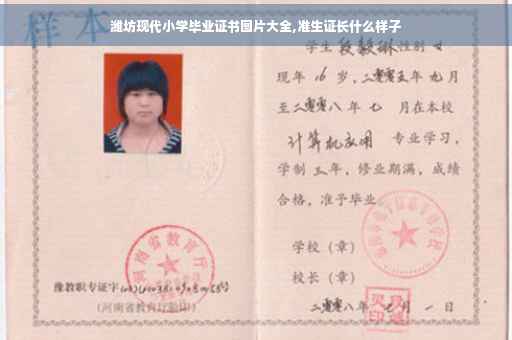 潍坊现代小学毕业证书图片大全,准生证长什么样子
样本
学生 段毅琳 性别 女
现年 16 岁,二零零五年 九 月
至二零零八 年 七 月在本校
计算机应用 专业学习,
学制 三 年,修业期满,成绩
合格,准予毕业
学校(章)
校长(章)
二零零八 年 七 月 一 日
河南省教育厅
豫教职专证字
(河南省教育厅验印)